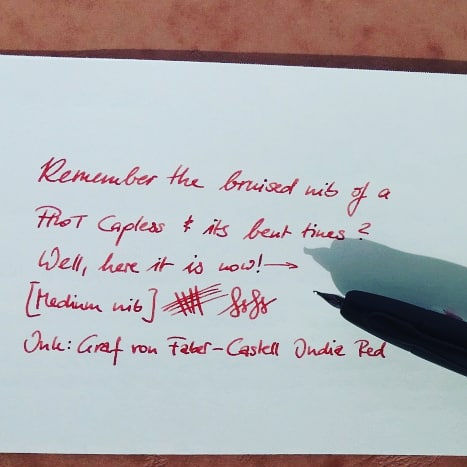 Remember the bruised nib of a
PILOT Capless & its bent tines?
Well, here it is now! →
[Medium nib]
Ink: Graf von Faber-Castell India Red